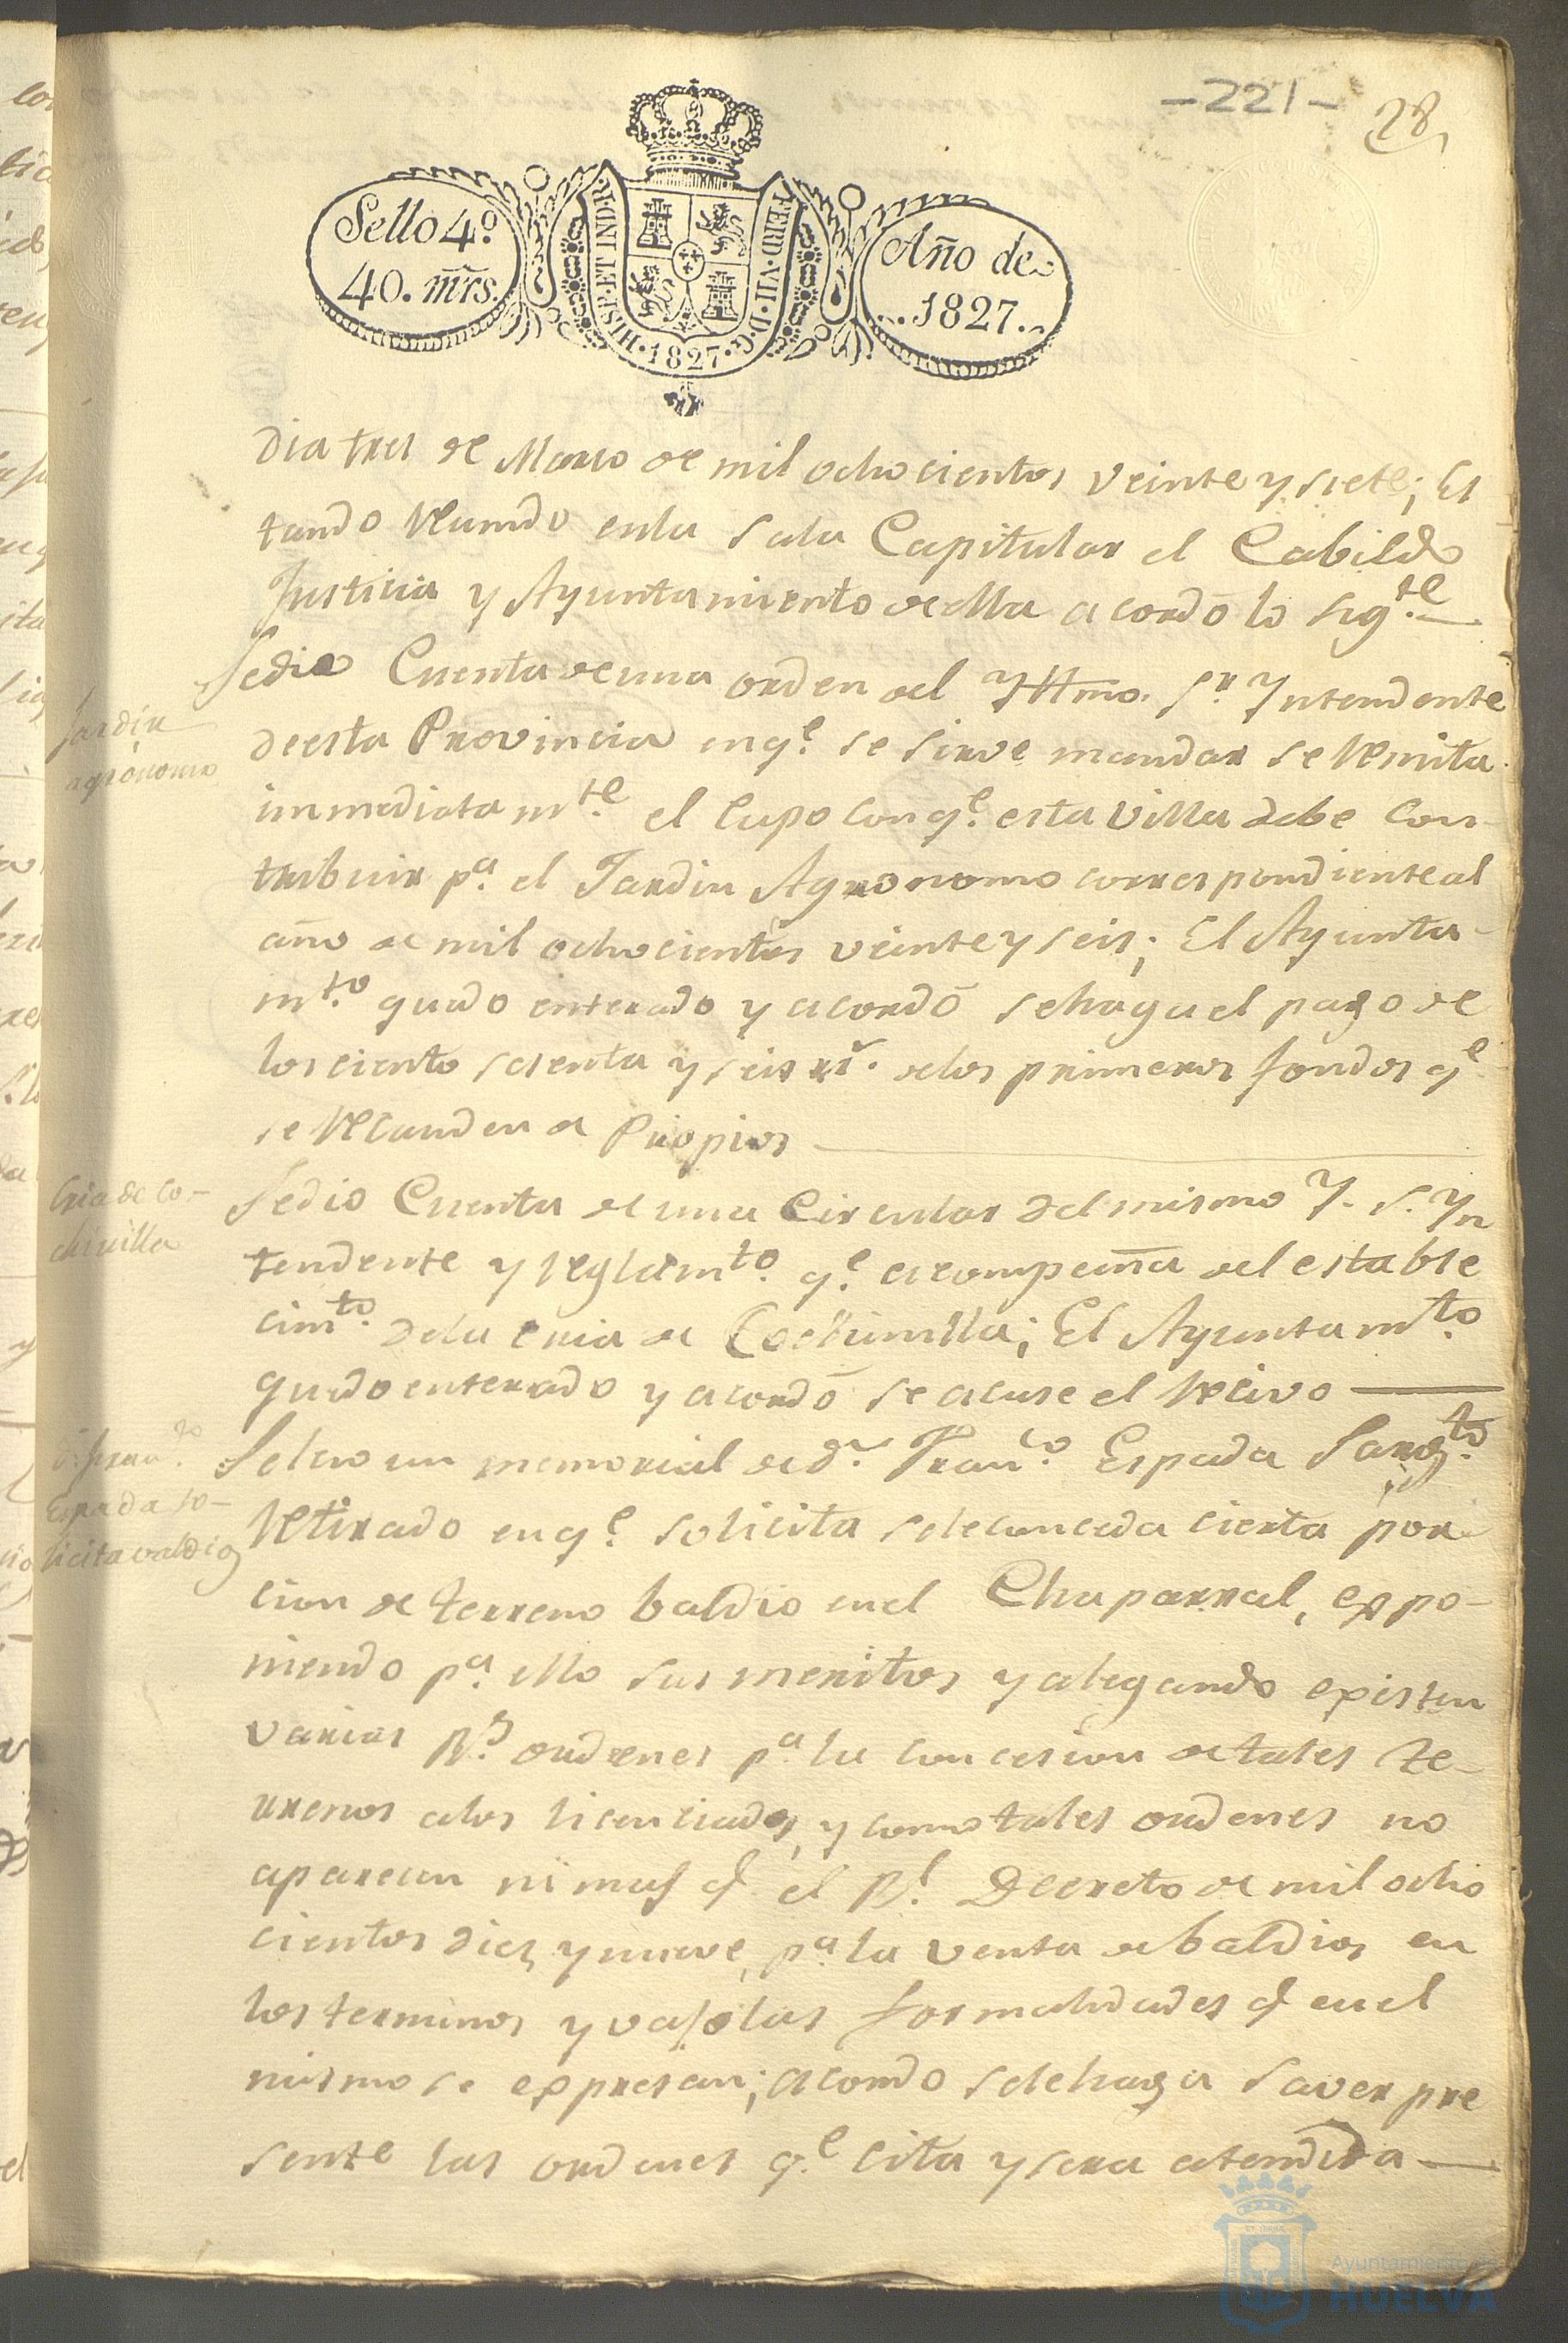 -221-
28
Sello 4.º
40. mrs.
HISP. ET IND. R.
FERD. VII. D. G.
1827
Año de
1827.
dia tres de Marzo de mil ochocientos veinte y siete; Es
tando Reunido enla Sala Capitular el Cabildo
Justicia y Ayuntamiento de ella acordó lo sig.te
Jardin
agronomo
Sedio Cuenta de una orden del Yltmo. Sr. Yntendente
deesta Provincia enq.e se sirve mandar se Remita
immediatam.te el Cupo conq.e esta Villa debe con-
tribuir p.a el Jardin Agronomo correspondiente al
año de mil ochocientos veinte y seis; El Ayunta-
m.to quedo enterado y acordó sehaga el pago de
los ciento sesenta y seis rr.s delos primeros fondos q.e
se Recauden de Propios
Cria de co-
chinilla
Sedio Cuenta de una Circular del mismo Y. S. Yn
tendente y reglam.to q.e acompaña del estable
cim.to dela cria de Cochinilla; El Ayuntam.to
quedo enterado y acordó se acuse el Recivo
d. Fran.co
Espada so-
licita valdios
Seleio un memorial de d.n Fran.co Espada Sarg.to
Retirado enq.e solicita seleconceda cierta por
cion de terreno baldio enel Chaparral, expo-
niendo p.a ello sus meritos y alegando existen
varias R.s ordenes p.a la concesion de tales te-
rrenos alos licenciados, y como tales ordenes no
aparecen ni mas q.e el R.l Decreto de mil ocho
cientos diez y nueve, p.a la venta de baldios en
los terminos y vajo las formalidades q.e enel
mismo se expresan; acordo selehaga saver pre
sente las ordenes q.e cita y sera atendida
Ayuntamiento de
HUELVA